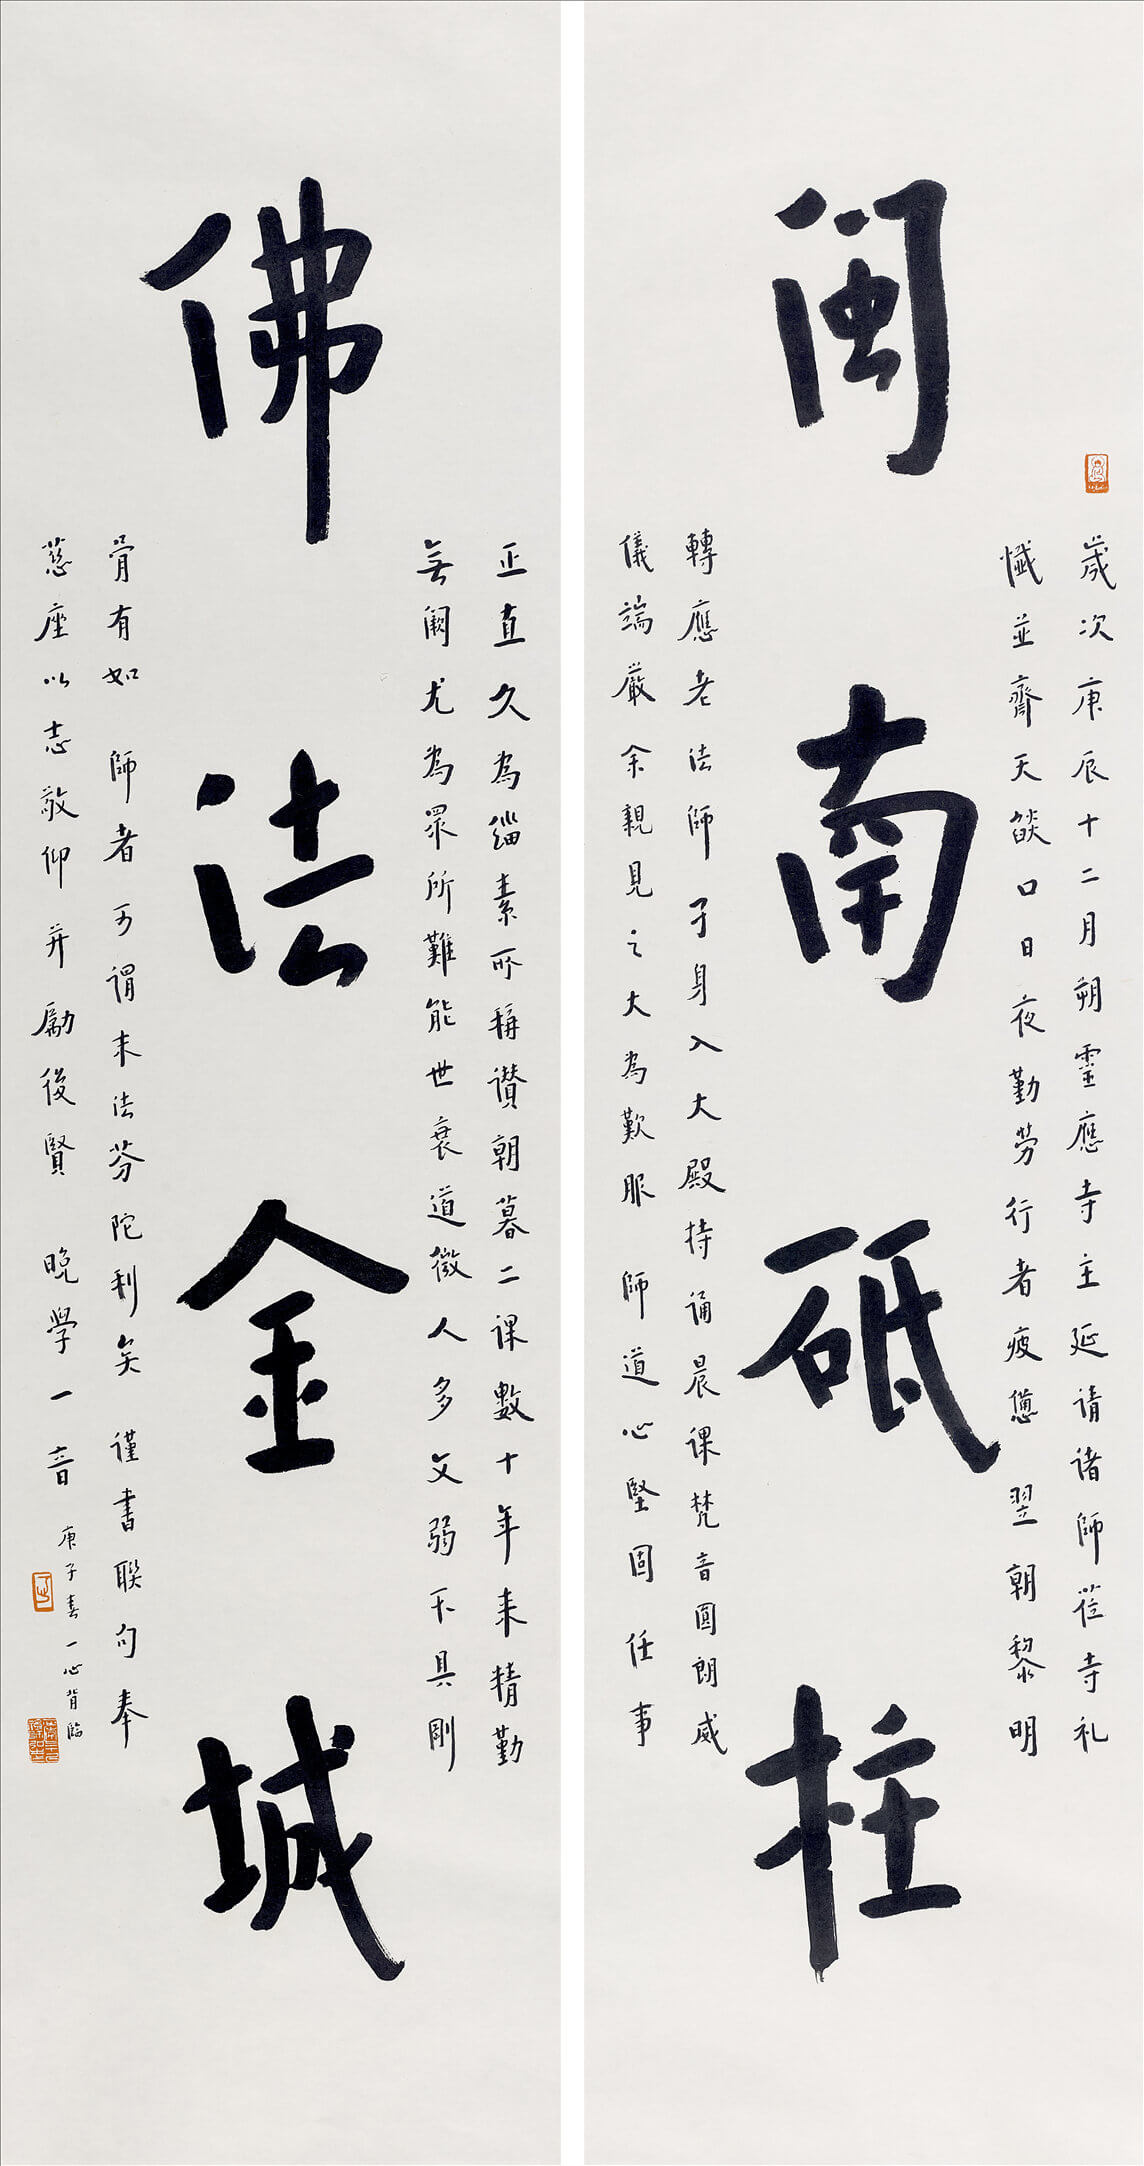 閩南砥柱
歲次庚辰十二月朔靈應寺主延请诸師莅寺礼
懺並齋天燄口日夜勤劳行者疲憊翌朝黎明
轉應老法師子身入大殿持诵晨课梵音圓朗威
儀端嚴余親見之大為歎服 師道心堅固任事
佛法金城
正直久為緇素所稱讚朝暮二课數十年来精勤
無阙尤為眾所難能世衰道微人多文弱不具剛
骨有如 師者可謂末法芬陀利矣 谨書聯句奉
慈座以志敬仰并勵後賢 晚學一音
庚子春一心背臨